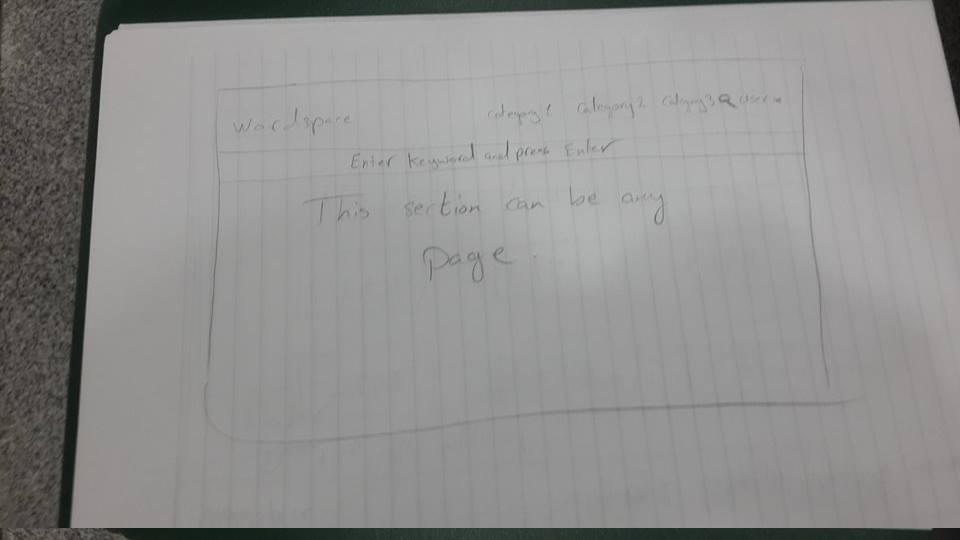 Wordspace Category1 Category2 Category3 user
Enter keyword and press Enter
This section can be any
page.